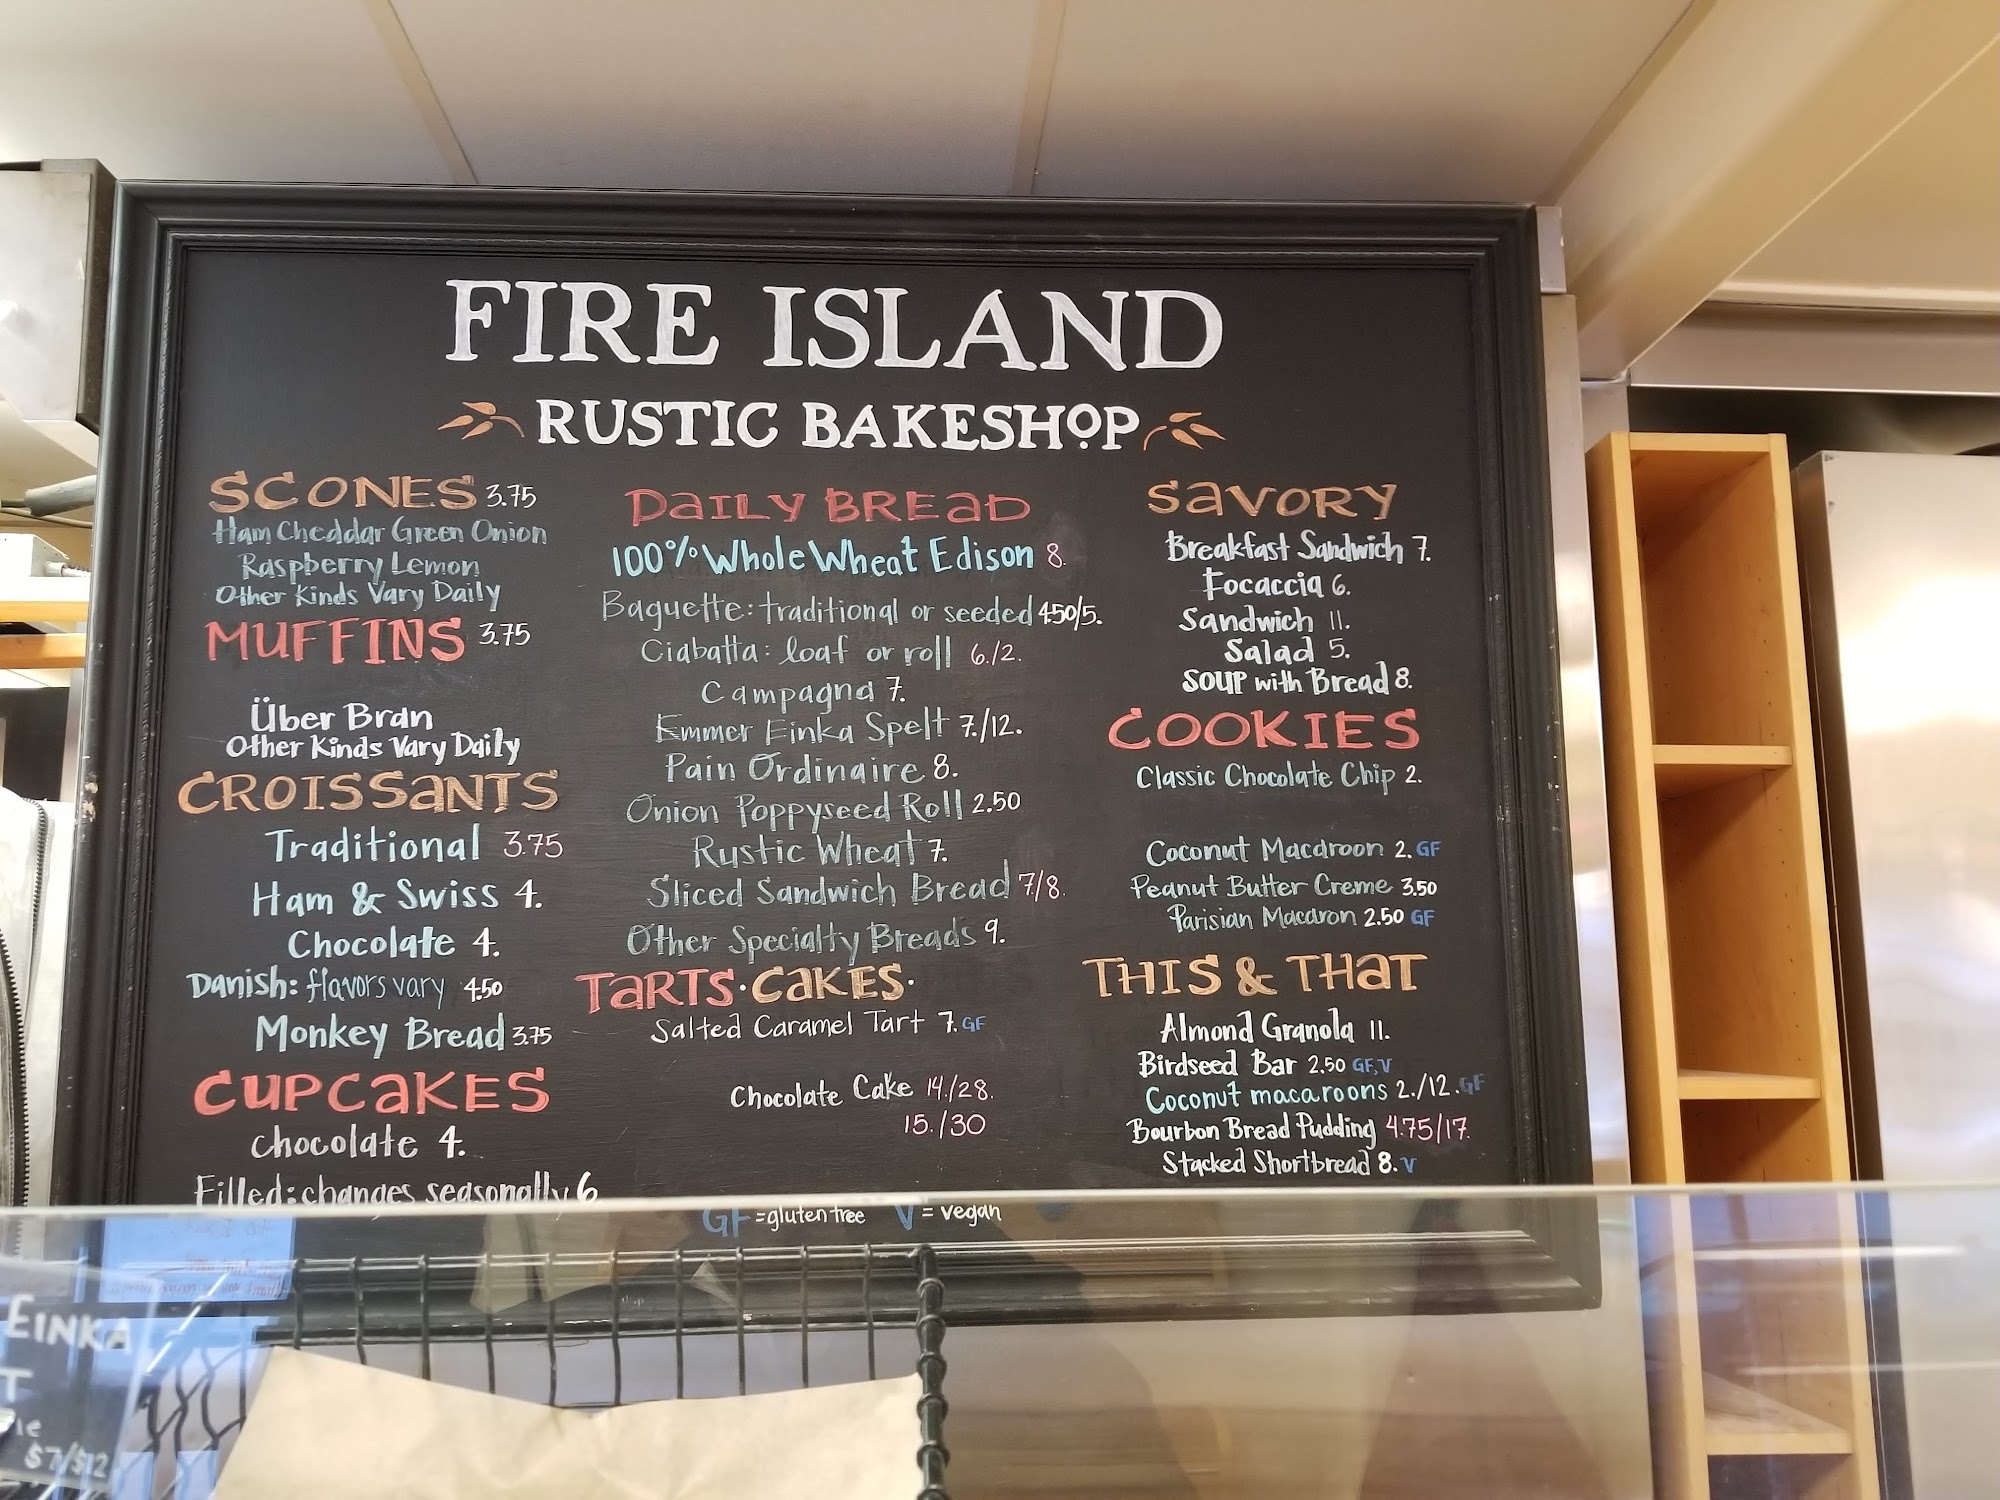 FIRE ISLAND
RUSTIC BAKESHOP
SCONES 3.75
Ham Cheddar Green Onion
Raspberry Lemon
Other Kinds Vary Daily
MUFFINS 3.75
Über Bran
Other Kinds Vary Daily
CROISSANTS
Traditional 3.75
Ham & Swiss 4.
Chocolate 4.
Danish: flavors vary 4.50
Monkey Bread 3.75
CUPCAKES
Chocolate 4.
Filled: changes seasonally 6
DAILY BREAD
100% Whole Wheat Edison 8.
Baguette: traditional or seeded 4.50/5.
Ciabatta: loaf or roll 6./2.
Campagna 7.
Emmer Einka Spelt 7./12.
Pain Ordinaire 8.
Onion Poppyseed Roll 2.50
Rustic Wheat 7.
Sliced Sandwich Bread 7/8.
Other Specialty Breads 9.
TARTS · CAKES ·
Salted Caramel Tart 7. GF
Chocolate Cake 14./28.
15./30
GF = gluten free V = vegan
SAVORY
Breakfast Sandwich 7.
Focaccia 6.
Sandwich 11.
Salad 5.
SOUP with Bread 8.
COOKIES
Classic Chocolate Chip 2.
Coconut Macaroon 2. GF
Peanut Butter Creme 3.50
Parisian Macaron 2.50 GF
THIS & THAT
Almond Granola 11.
Birdseed Bar 2.50 GF, V
Coconut macaroons 2./12. GF
Bourbon Bread Pudding 4.75/17.
Stacked Shortbread 8. V
EINKA
T
$7/$12